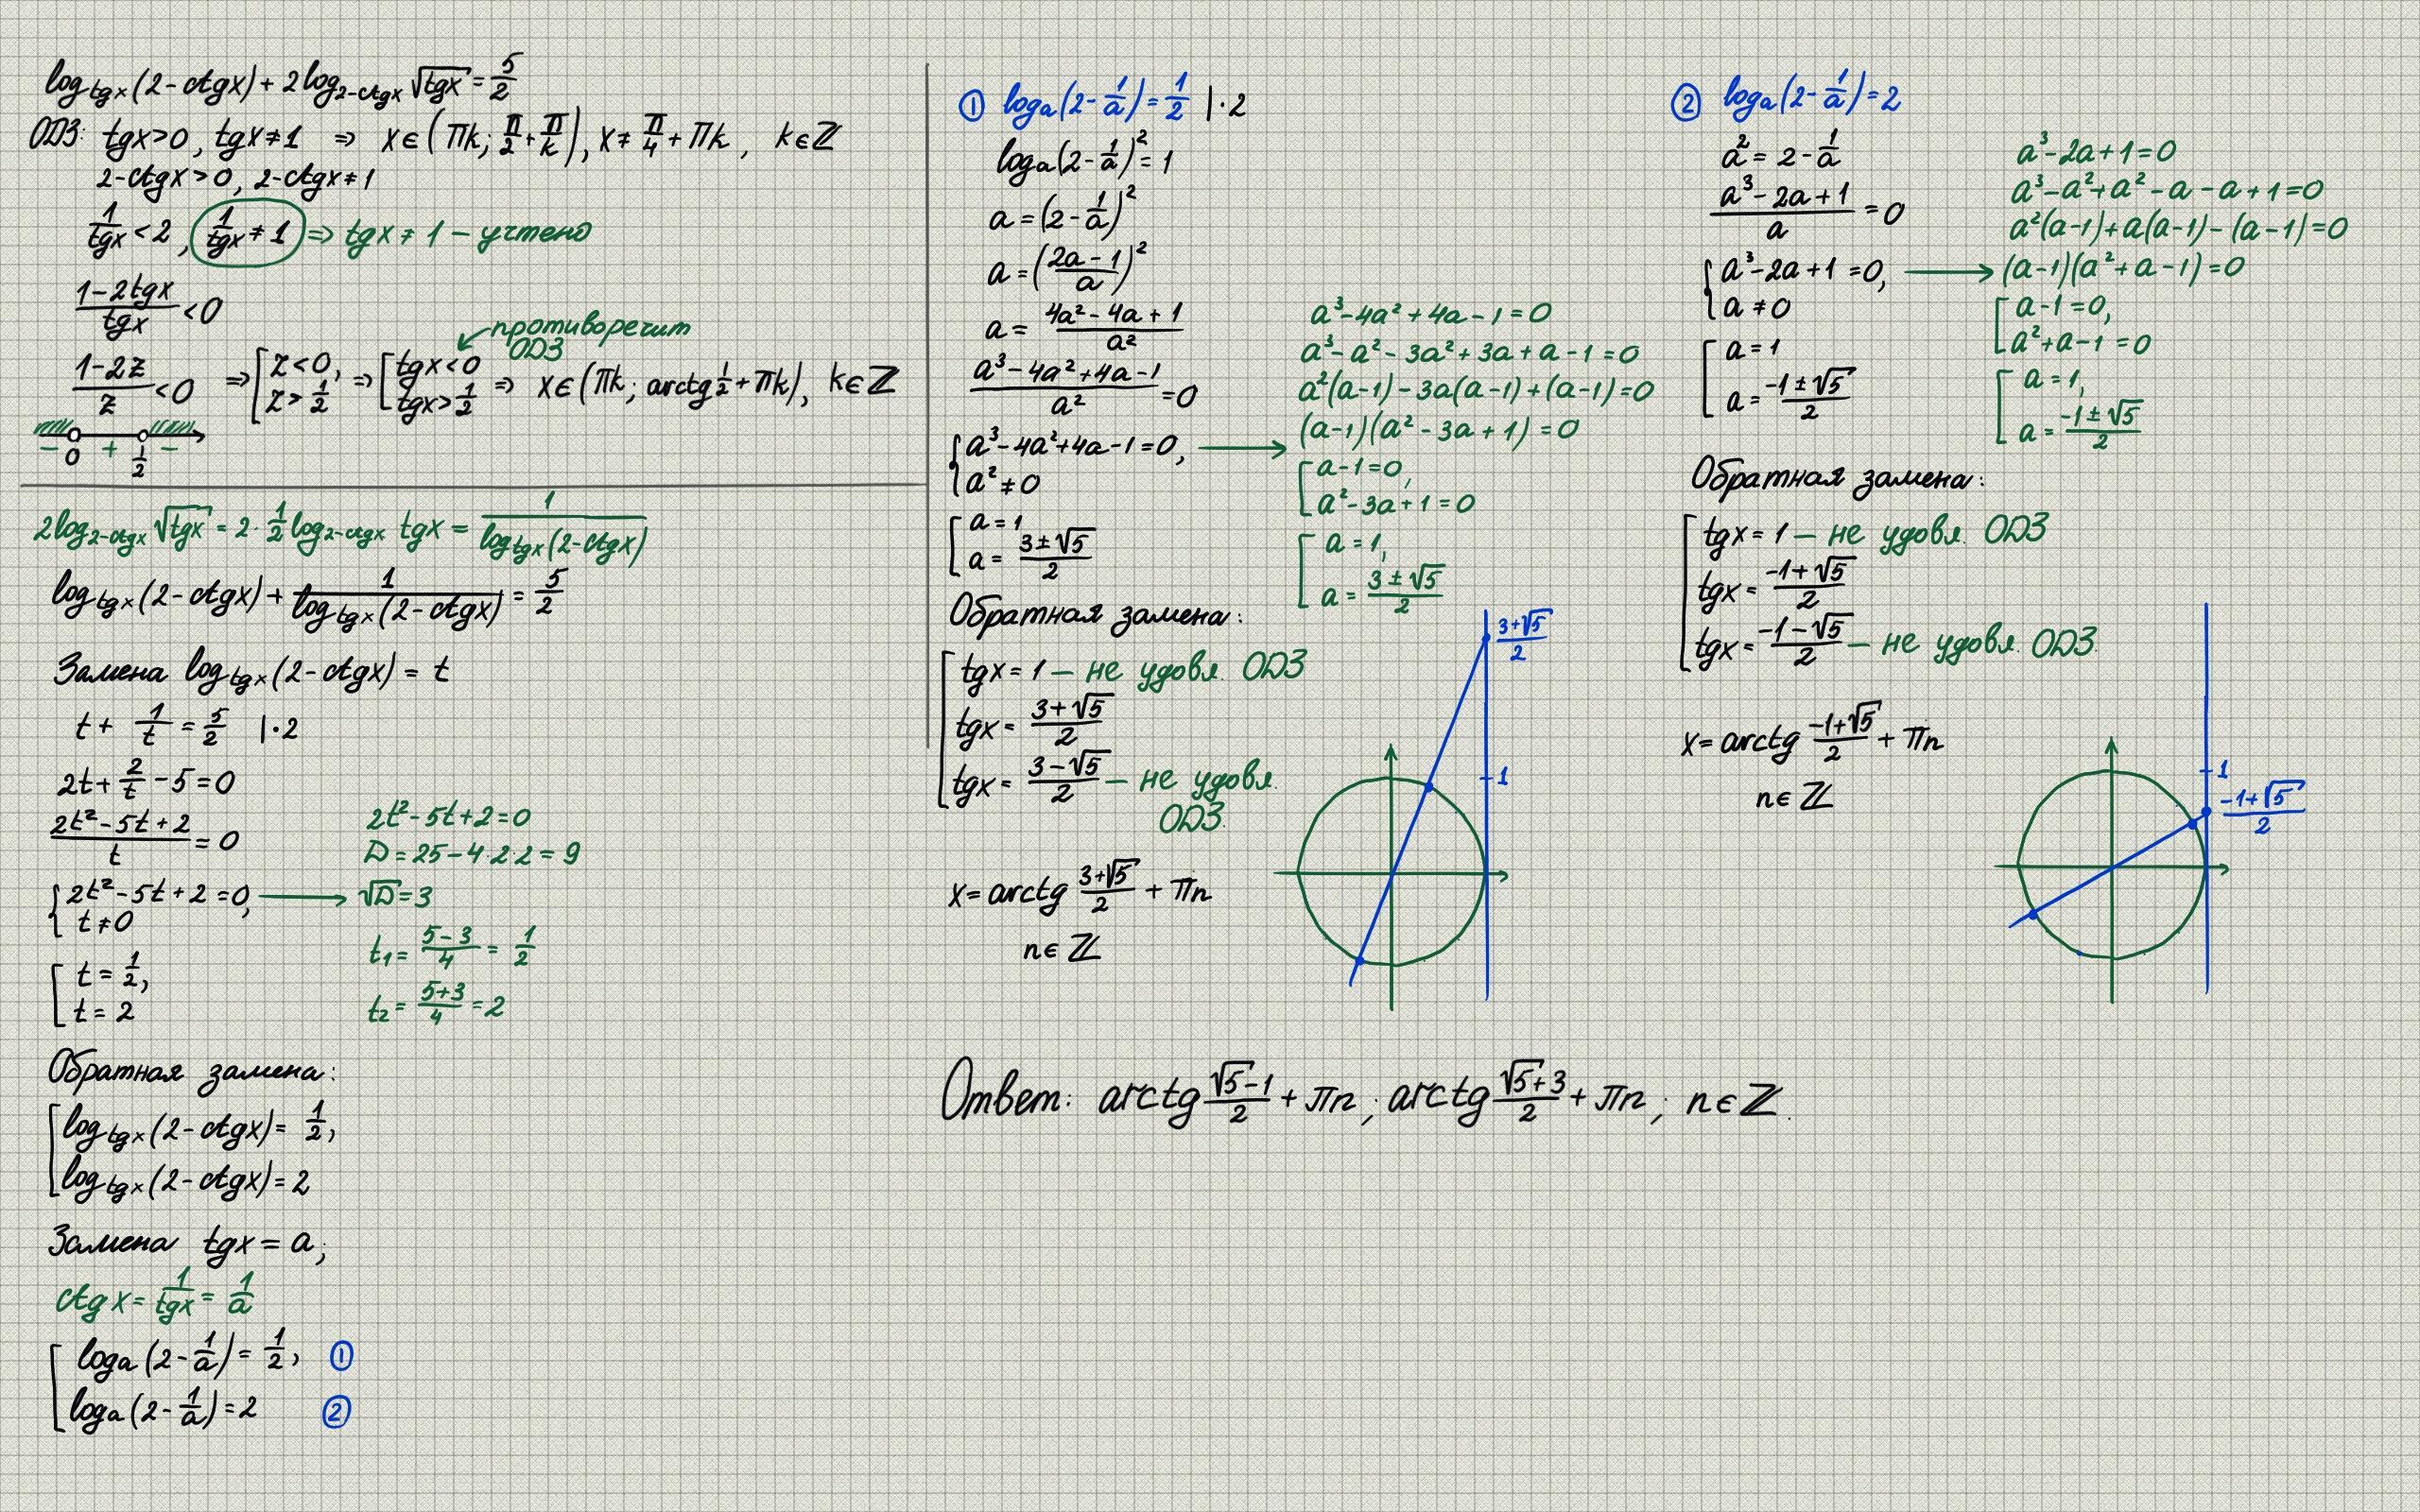 log_{tgx}(2-ctgx)+2log_{2-ctgx}√tgx = 5/2
ОДЗ: tgx>0, tgx≠1 ⇒ x∈(πk; π/2+π/k), x≠π/4+πk, k∈ℤ
2-ctgx>0, 2-ctgx≠1
1/tgx<2, 1/tgx≠1 ⇒ tgx≠1 – учтено
(1-2tgx)/tgx<0
противоречит
ОДЗ
(1-2z)/z<0 ⇒ [z<0, z>1/2 ⇒ [tgx<0 tgx>1/2 ⇒ x∈(πk; arctg 1/2+πk), k∈ℤ
- 0 + 1/2 -
2log_{2-ctgx}√tgx = 2·1/2 log_{2-ctgx} tgx = 1/log_{tgx}(2-ctgx)
log_{tgx}(2-ctgx)+1/log_{tgx}(2-ctgx) = 5/2
Замена log_{tgx}(2-ctgx) = t
t + 1/t = 5/2 |·2
2t+2/t-5=0
(2t²-5t+2)/t=0
{2t²-5t+2=0, →
t≠0
[t=1/2,
t=2
2t²-5t+2=0
D=25-4·2·2=9
√D=3
t₁=(5-3)/4=1/2
t₂=(5+3)/4=2
Обратная замена:
[log_{tgx}(2-ctgx)=1/2,
log_{tgx}(2-ctgx)=2
Замена tgx=a;
ctgx=1/tgx=1/a
[log_a(2-1/a)=1/2, ①
log_a(2-1/a)=2 ②
① log_a(2-1/a)=1/2 |·2
log_a(2-1/a)²=1
a=(2-1/a)²
a=((2a-1)/a)²
a=(4a²-4a+1)/a²
(a³-4a²+4a-1)/a²=0
{a³-4a²+4a-1=0, →
a²≠0
[a=1
a=(3±√5)/2
a³-4a²+4a-1=0
a³-a²-3a²+3a+a-1=0
a²(a-1)-3a(a-1)+(a-1)=0
(a-1)(a²-3a+1)=0
[a-1=0,
a²-3a+1=0
[a=1,
a=(3±√5)/2
Обратная замена:
[tgx=1 – не удовл. ОДЗ
tgx=(3+√5)/2
tgx=(3-√5)/2 – не удовл.
ОДЗ.
x=arctg (3+√5)/2+πn
n∈ℤ
(3+√5)/2
1
② log_a(2-1/a)=2
a²=2-1/a
(a³-2a+1)/a=0
{a³-2a+1=0, →
a≠0
[a=1
a=(-1±√5)/2
a³-2a+1=0
a³-a²+a²-a-a+1=0
a²(a-1)+a(a-1)-(a-1)=0
(a-1)(a²+a-1)=0
[a-1=0,
a²+a-1=0
[a=1,
a=(-1±√5)/2
Обратная замена:
[tgx=1 – не удовл. ОДЗ
tgx=(-1+√5)/2
tgx=(-1-√5)/2 – не удовл. ОДЗ.
x=arctg (-1+√5)/2+πn
n∈ℤ
1
(-1+√5)/2
Ответ: arctg (√5-1)/2+πn; arctg (√5+3)/2+πn; n∈ℤ.